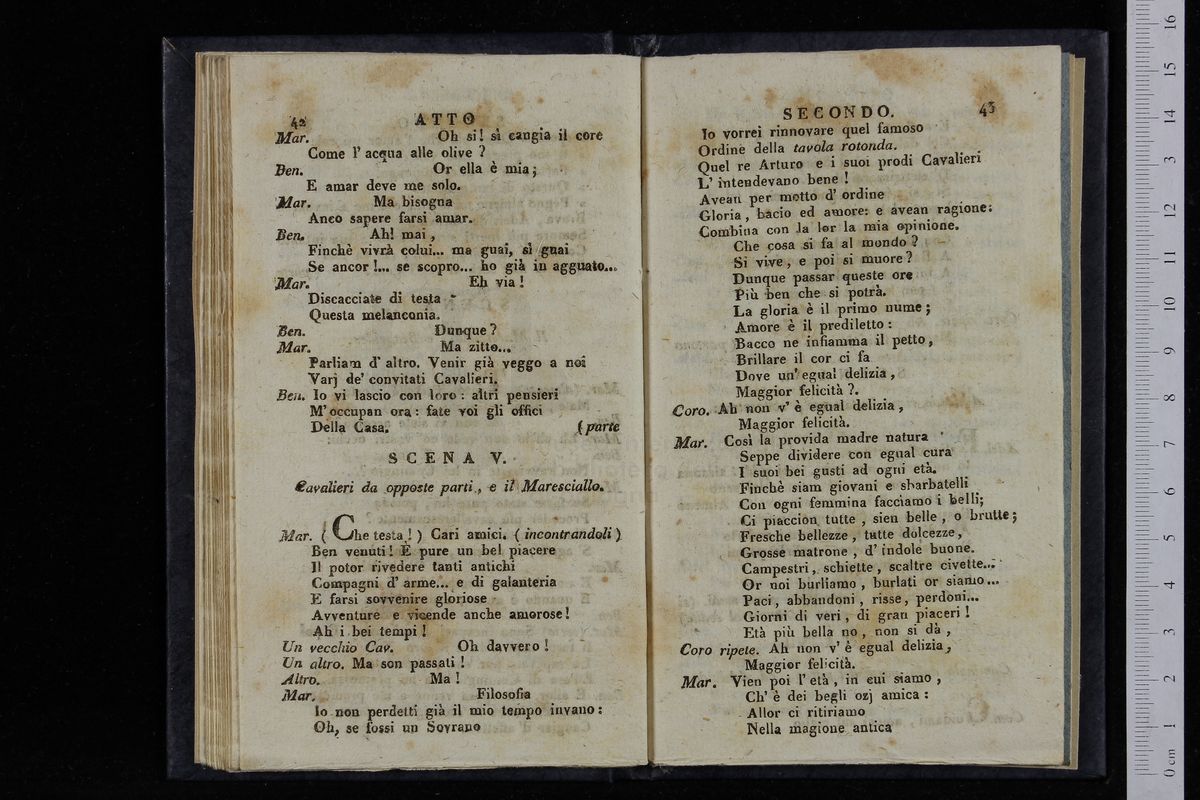 42 ATTO
Mar. Oh si! sì cangia il core
Come l' acqua alle olive ?
Ben. Or ella è mia;
E amar deve me solo.
Mar. Ma bisogna
Anco sapere farsi amar.
Ben. Ah! mai,
Finchè vivrà colui... ma guai, sì guai
Se ancor!... se scopro... ho già in agguato...
Mar. Eh via!
Discacciate di testa
Questa melanconia.
Ben. Dunque?
Mar. Ma zitto...
Parliam d' altro. Venir già veggo a noi
Varj de' convitati Cavalieri.
Ben. Io vi lascio con loro: altri pensieri
M' occupan ora: fate voi gli offici
Della Casa. (parte
SCENA V.
Cavalieri da opposte parti, e il Maresciallo.
Mar. (Che testa!) Cari amici. (incontrandoli)
Ben venuti! È pure un bel piacere
Il poter rivedere tanti antichi
Compagni d' arme... e di galanteria
E farsi sovvenire gloriose
Avventure e vicende anche amorose!
Ah i bei tempi!
Un vecchio Cav. Oh davvero!
Un altro. Ma son passati!
Altro. Ma!
Mar. Filosofia
Io non perdetti già il mio tempo invano:
Oh, se fossi un Sovrano
SECONDO. 43
Io vorrei rinnovare quel famoso
Ordine della tavola rotonda.
Quel re Arturo e i suoi prodi Cavalieri
L' intendevano bene!
Avean per motto d' ordine
Gloria, bacio ed amore: e avean ragione:
Combina con la lor la mia opinione.
Che cosa si fa al mondo?
Si vive, e poi si muore?
Dunque passar queste ore
Più ben che si potrà.
La gloria è il primo nume;
Amore è il prediletto:
Bacco ne infiamma il petto,
Brillare il cor ci fa
Dove un' egual delizia,
Maggior felicità?.
Coro. Ah non v' è egual delizia,
Maggior felicità.
Mar. Così la provida madre natura
Seppe dividere con egual cura
I suoi bei gusti ad ogni età.
Finchè siam giovani e sbarbatelli
Con ogni femmina facciamo i belli;
Ci piaccion tutte, sien belle, o brutte;
Fresche bellezze, tutte dolcezze,
Grosse matrone, d' indole buone.
Campestri, schiette, scaltre civette...
Or noi burliamo, burlati or siamo...
Paci, abbandoni, risse, perdoni...
Giorni di veri, di gran piaceri!
Età più bella no, non si dà,
Coro ripete. Ah non v' è egual delizia,
Maggior felicità.
Mar. Vien poi l' età, in cui siamo,
Ch' è dei begli ozj amica:
Allor ci ritiriamo
Nella magione antica
0 cm 1 2 3 4 5 6 7 8 9 10 11 12 13 14 15 16